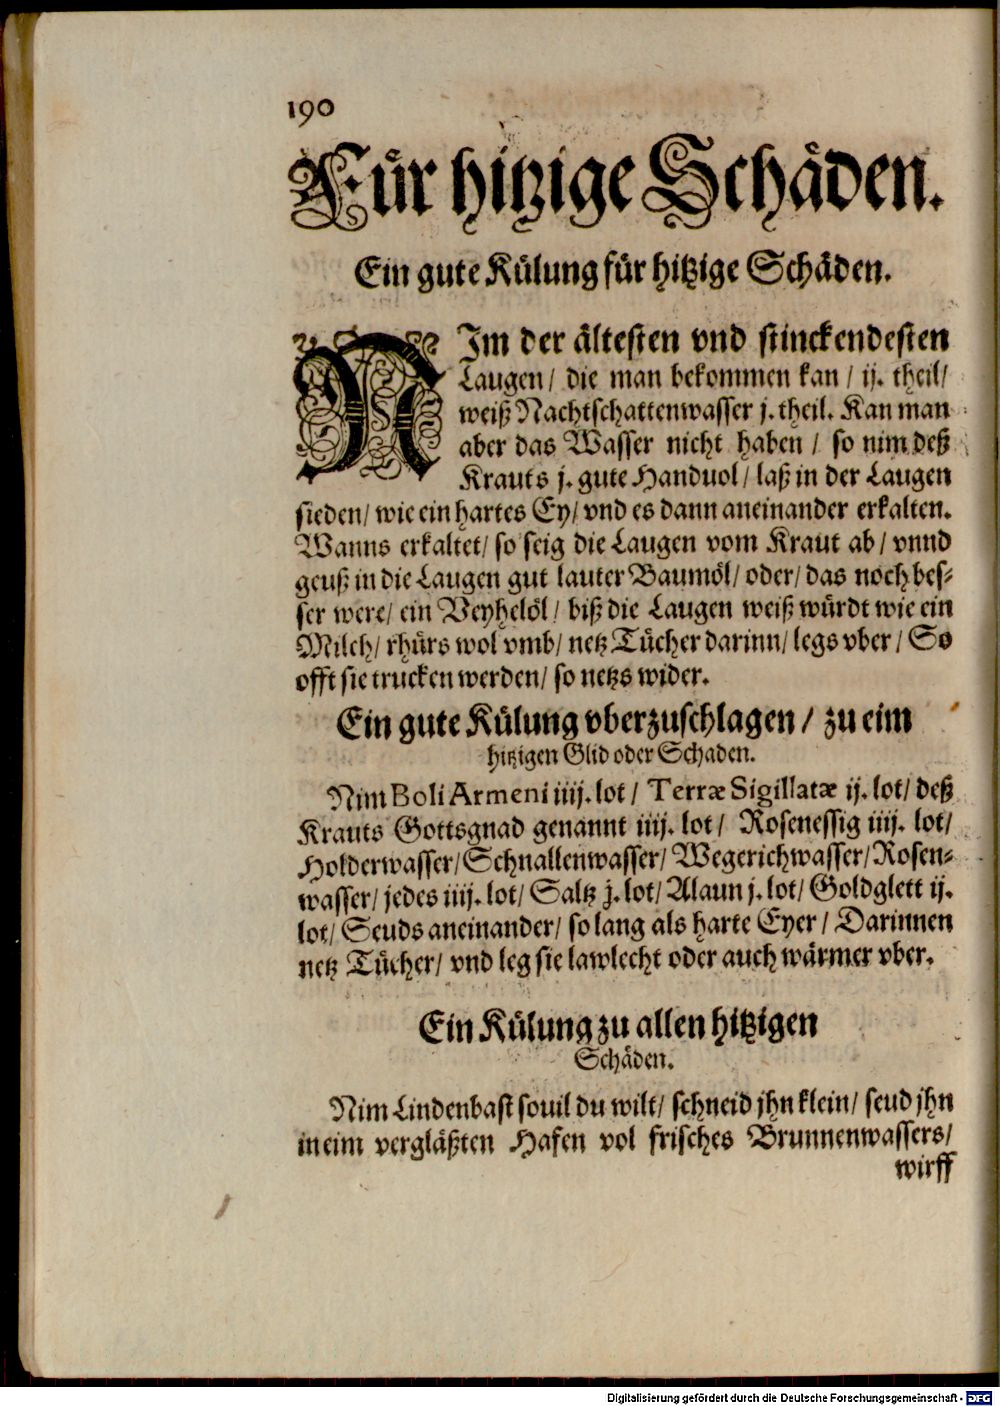 190
Für hitzige Schäden.
Ein gute Külung für hitzige Schäden.
NIm der ältesten vnd stinckendesten
Laugen/ die man bekommen kan/ ij. theil/
weiß Nachtschattenwasser j. theil. Kan man
aber das Wasser nicht haben/ so nim deß
Krauts j. gute Handuol/ laß in der Laugen
sieden/ wie ein hartes Ey/ vnd es dann aneinander erkalten.
Wanns erkaltet/ so seig die Laugen vom Kraut ab/ vnnd
geuß in die Laugen gut lauter Baumöl/ oder/ das noch bes-
ser were/ ein Veyhelöl/ biß die Laugen weiß würdt wie ein
Milch/ rhürs wol vmb/ netz Tücher darinn/ legs vber/ So
offt sie trucken werden/ so netzs wider.
Ein gute Külung vberzuschlagen/ zu eim
hitzigen Glid oder Schaden.
Nim Boli Armeni iiij. lot/ Terræ Sigillatæ ij. lot/ deß
Krauts Gottsgnad genannt iiij. lot/ Rosenessig iiij. lot/
Holderwasser/ Schnallenwasser/ Wegerichwasser/ Rosen-
wasser/ jedes iiij. lot/ Saltz j. lot/ Alaun j. lot/ Goldglett ij.
lot/ Seuds aneinander/ so lang als harte Eyer/ Darinnen
netz Tücher/ vnd leg sie lawlecht oder auch wärmer vber.
Ein Külung zu allen hitzigen
Schäden.
Nim Lindenbast souil du wilt/ schneid jhn klein/ seud jhn
in eim vergläßten Hafen vol frisches Brunnenwassers/
wirff
Digitalisierung gefördert durch die Deutsche Forschungsgemeinschaft - DFG